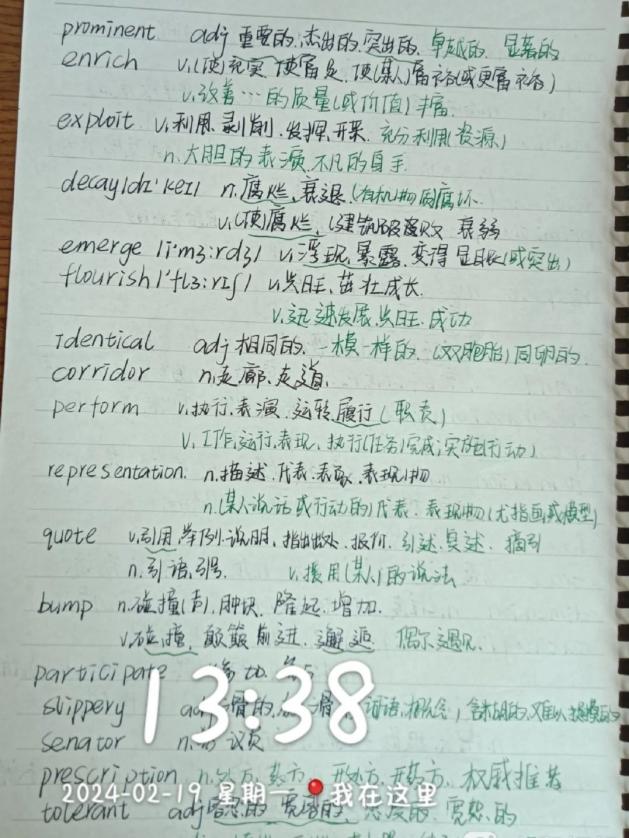 prominent adj 重要的.杰出的.突出的. 卓越的. 显著的
enrich v.(使)充实.使富足.使(某人)富裕(或更富裕)
v.改善…的质量(或价值)丰富.
exploit v.利用.剥削.发挥.开采. 充分利用(资源)
n.大胆的表演.不凡的身手.
decay/dɪ'keɪ/ n.腐烂.衰退.(有机物的)腐坏.
v.(使)腐烂. 衰弱
emerge /i'mɜ:rdʒ/ v.浮现.暴露.变得显眼(或突出)
flourish/'flɜ:rɪʃ/ v.兴旺.茁壮成长.
v.迅速发展.兴旺.成功
Identical adj 相同的.一模一样的.(双胞胎)同卵的.
corridor n.走廊.走道.
perform v.执行.表演.运转.履行(职责)
v.工作.运行.表现.执行(任务)完成;实施(行动)
representation. n.描述.代表.表现物
n.(某人说话或行动的)代表.表现物(尤指画或模型)
quote v.引用.举例说明.指出出处.报价.引述. 摘引
n.引语.引号. v.援用(某人)的说法
bump n.碰撞(声).肿块.隆起.增加.
v.碰撞.颠簸前进.邂逅 偶尔遇见.
participate
13:38
slippery adj
senator n. 议员
prescription n.处方.药方. 开处方.开药方. 权威推荐
2024-02-19 星期一 我在这里
tolerant adj 宽容的. 宽恕的